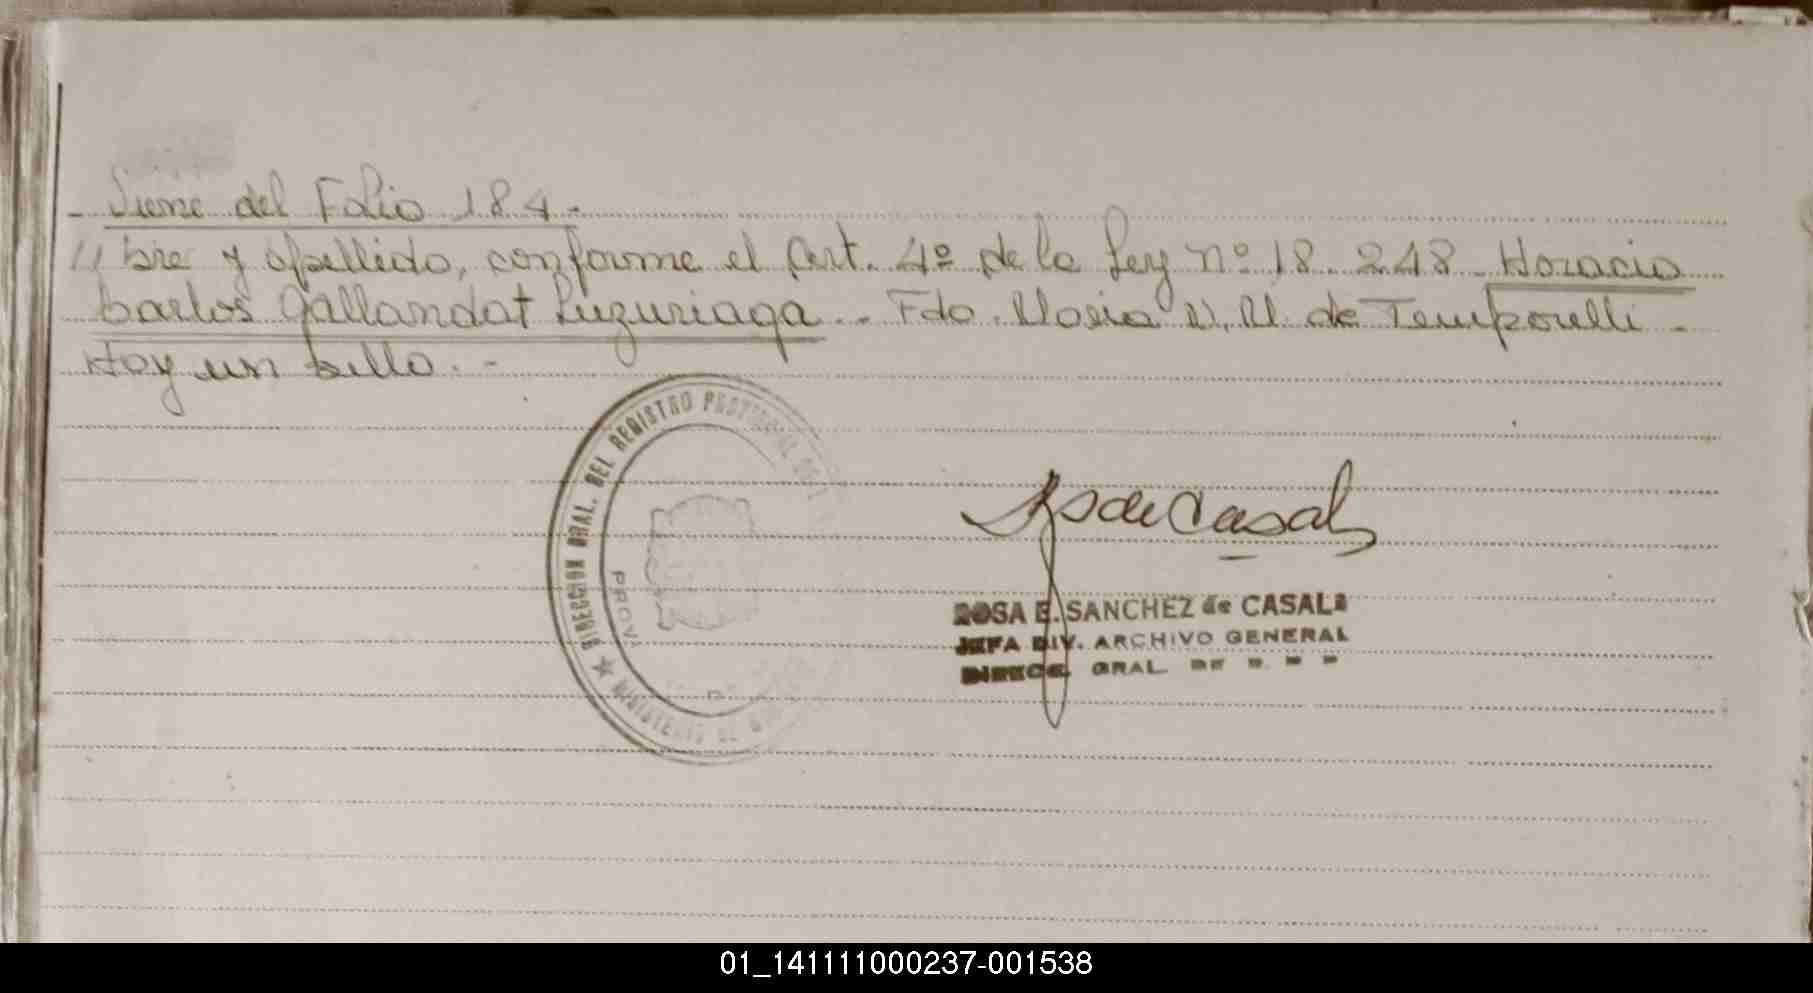 - Viene del Folio 184.-
// bre y apellido, conforme el Art. 4º de la Ley nº 18.248. Horacio
Carlos Gallandat Luzuriaga.- Fdo. Maria N. M. de Temporelli.-
Hay un sello.-
DIRECCION GRAL. DEL REGISTRO PROVINCIAL DE L
PROV
MINISTERIO DE G
RS de Casals
ROSA E. SANCHEZ de CASALS
JEFA DIV. ARCHIVO GENERAL
DIRECC. GRAL. DE
01_141111000237-001538